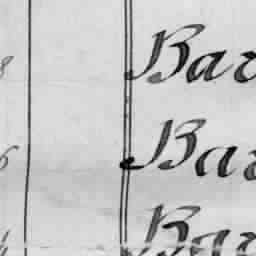 8 Bar
6 Bar
Bar